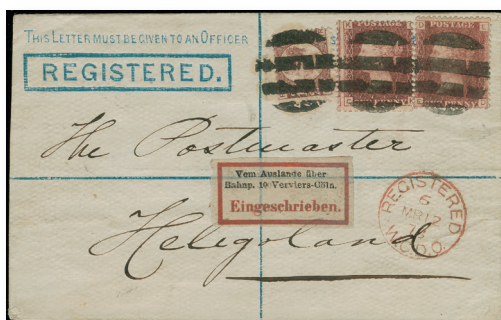 THIS LETTER MUST BE GIVEN TO AN OFFICER
REGISTERED.
POSTAGE
POSTAGE
The Postmaster
Vom Auslande über
Bahnp. 10 Verviers-Cöln.
Eingeschrieben.
Heligoland
REGISTERED
6
MR 12
W.C.D.O.